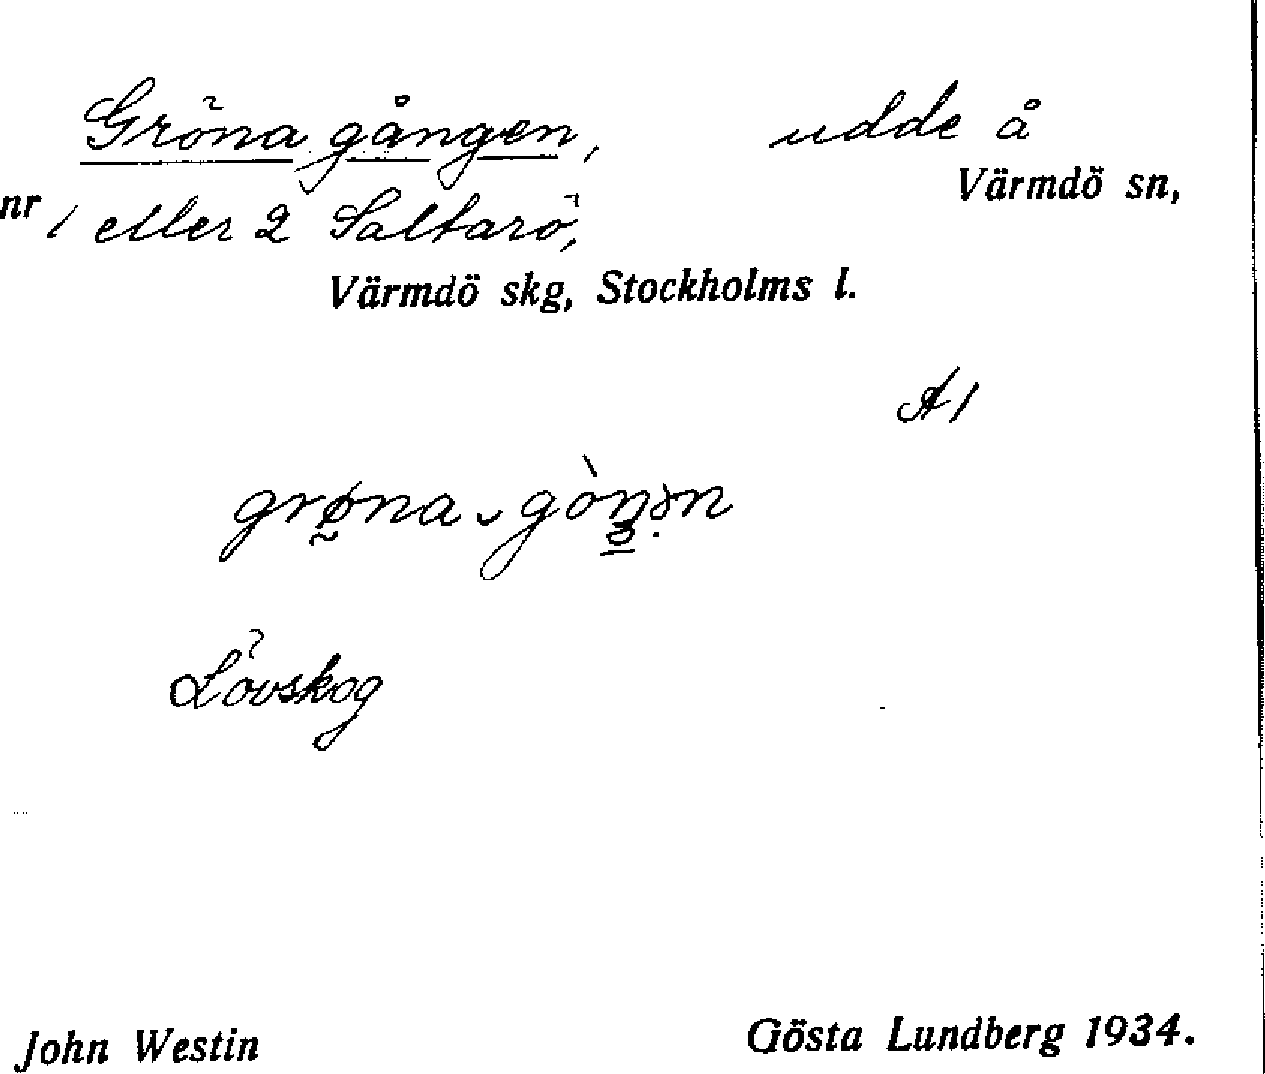 Gröna gången, udde å
Värmdö sn,
nr 1 eller 2 Saltarö,
Värmdö skg, Stockholms l.
A1
grøna gònən
Lövskog
John Westin Gösta Lundberg 1934.